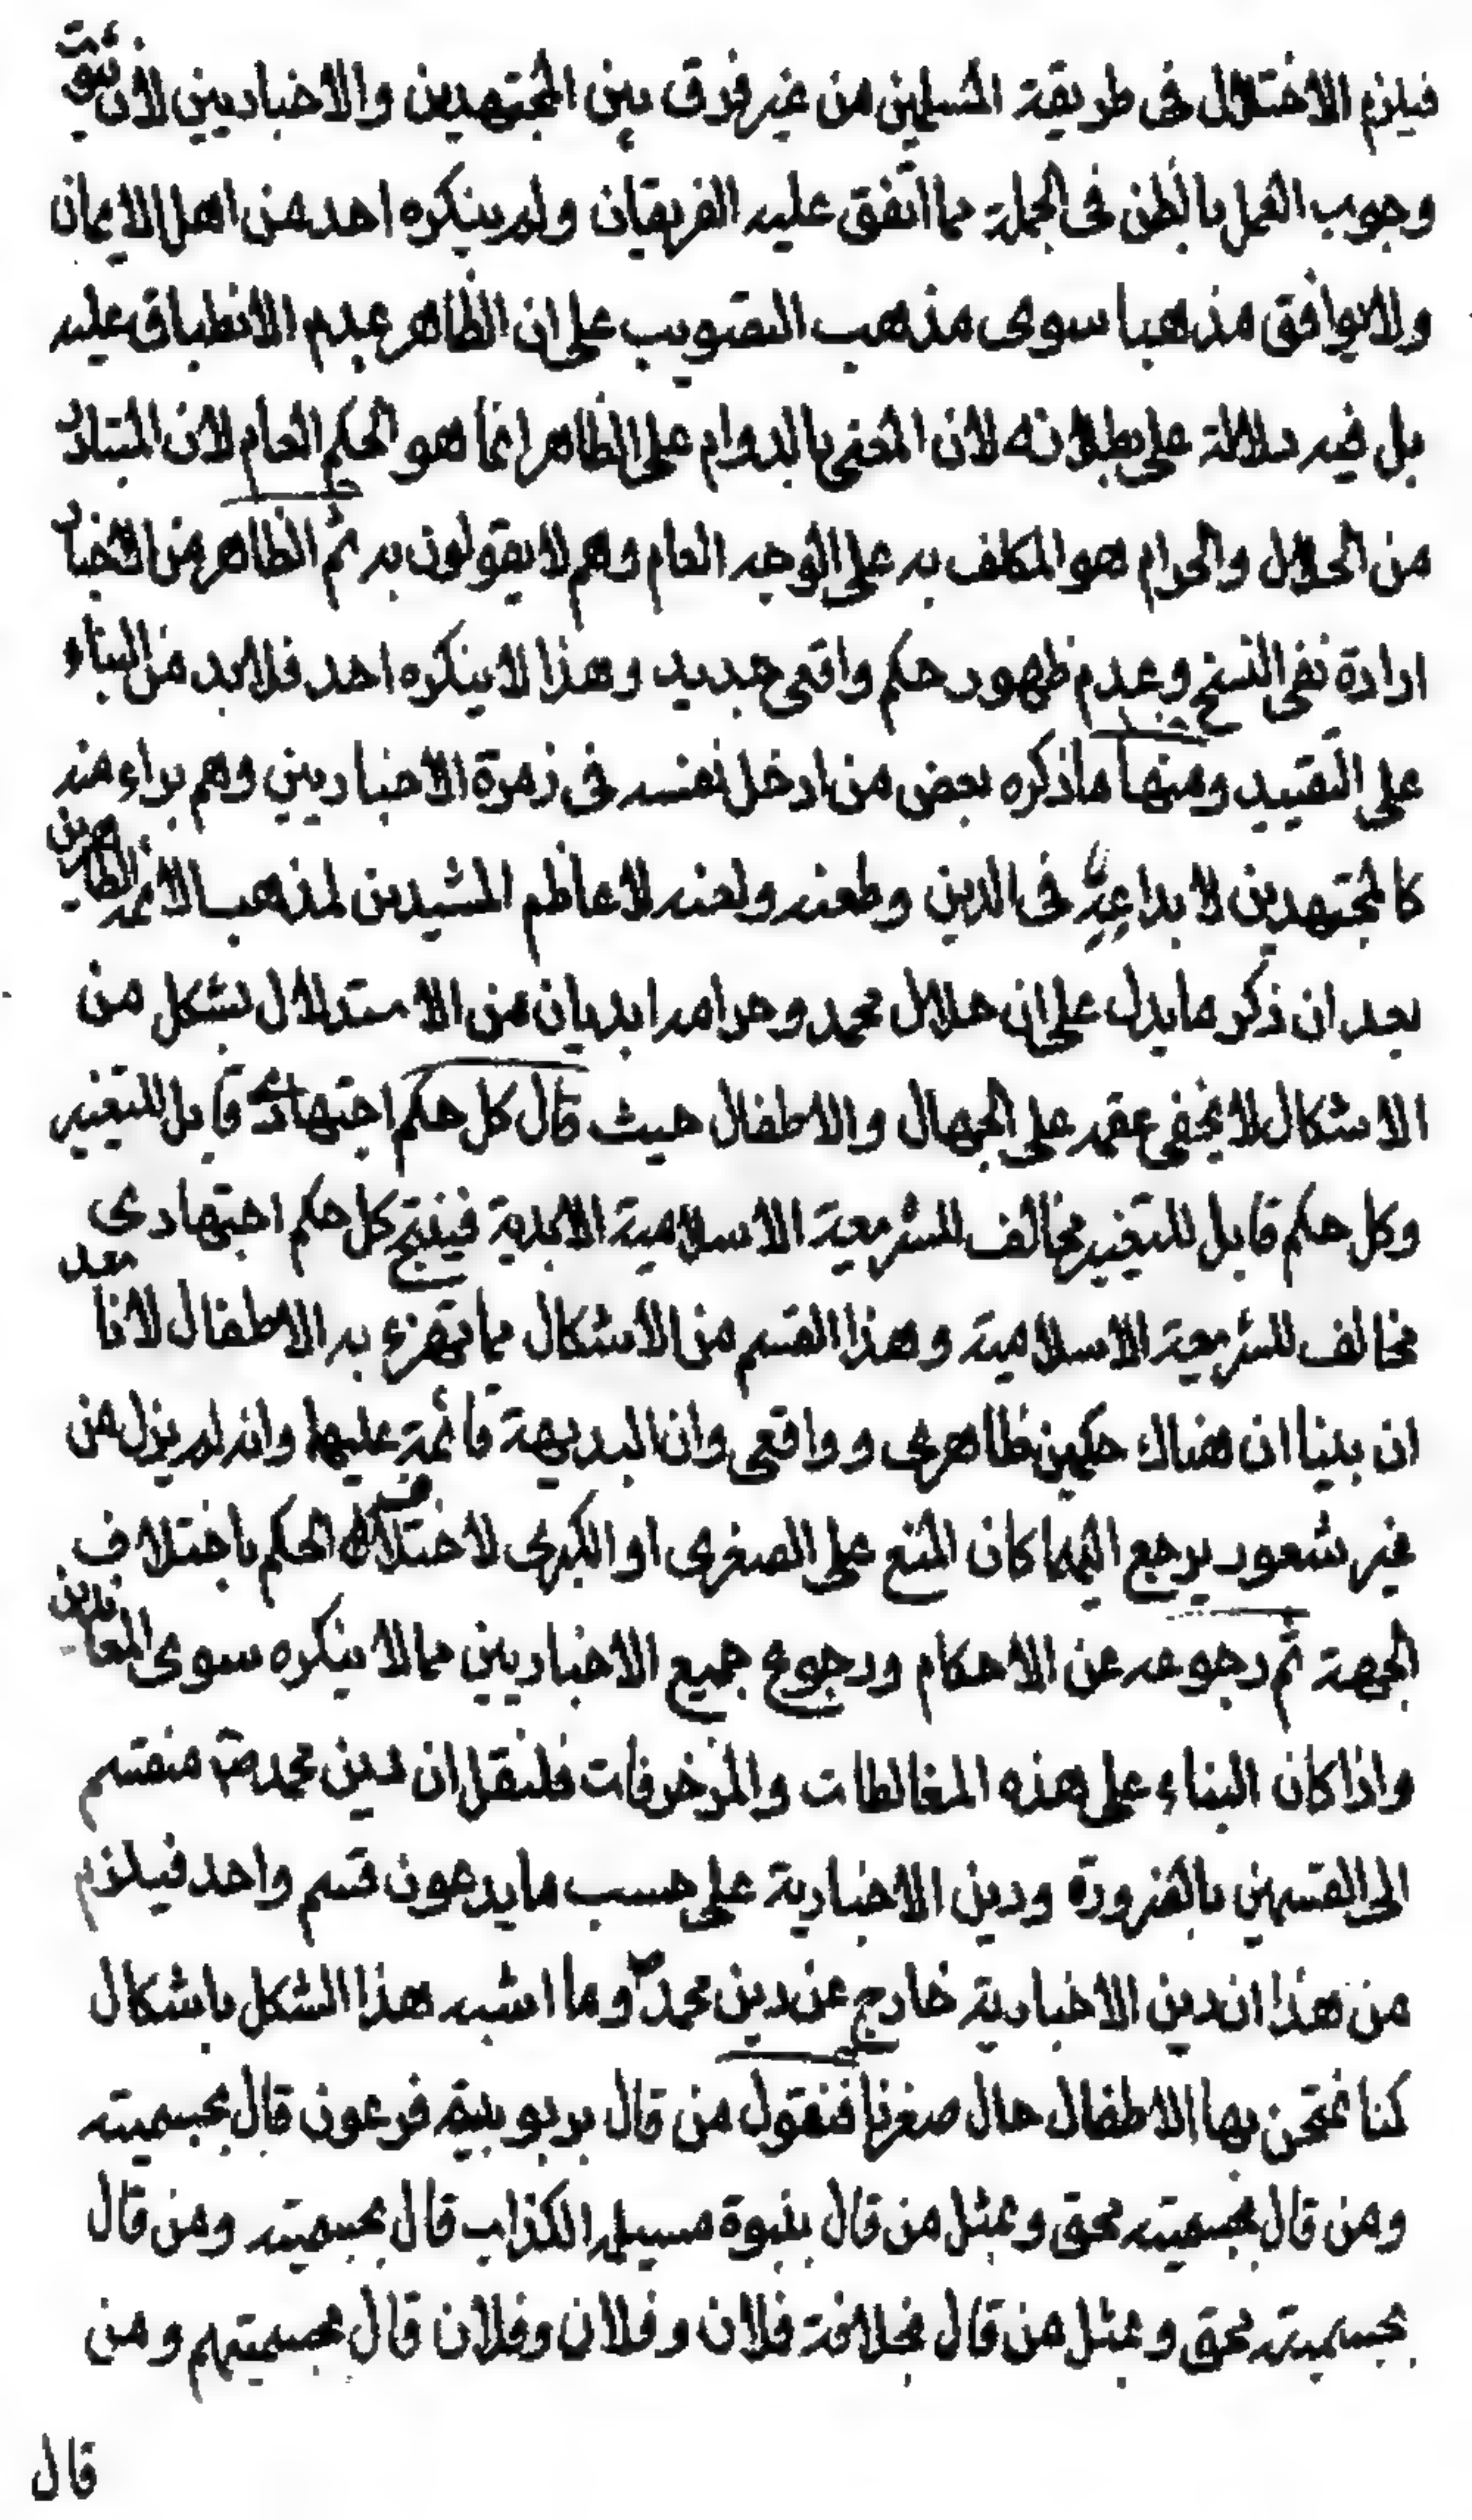 فيلزم الاختلال في طريقة المسلمين من غير فرق بين المجتهدين والاخباريين لان ثبوت
وجوب العمل بالظن في الجملة مما اتفق عليه الفريقان ولم ينكره احد من اهل الايمان
ولا يوافق مذهبا سوى مذهب التصويب على ان الظاهر عدم الانطباق عليه
بل فيه دلالة على بطلانه لان المعنى بالدوام على الظاهر انما هو الحكم العام لان المتبادر
من الحلال والحرام هو المكلف به على الوجه العام وهم لا يقولون به ثم الظاهر من الاخبار
ارادة نفى النسخ وعدم ظهور حكم واقعى جديد وهذا لا ينكره احد فلابد من البناء
على التقييد ومنها ما ذكره بعض من ادخل نفسه في زمرة الاخباريين وهم براء منه
كالمجتهدين لابداعه في الدين وطعنه ولعنه لاعاظم المشيدين لمذهب الائمة الطاهرين
بعد ان ذكر ما يدل على ان حلال محمد وحرامه ابديان من الاستدلال بشكل من
الاشكال لا يخفى عقمه على الجهال والاطفال حيث قال كل حكم اجتهادى قابل للتغيير
وكل حكم قابل للتغيير مخالف للشريعة الاسلامية الابدية فينتج كل حكم اجتهادى
مخالف للشريعة الاسلامية وهذا القسم من الاشكال مما تهزء به الاطفال لانا بعد
ان بينا ان هناك حكمين ظاهرى وواقعى وان البديهة قائمة عليها وانه لم يزل من
فيه شعور يرجع اليهما كان المنع على الصغرى او الكبرى لاختلاف الحكم باختلاف
الجهة ثم رجوعه عن الاحكام ورجوع جميع الاخباريين مما لا ينكره سوى المعاندين
واذا كان البناء على هذه المغالطات والمزخرفات فلنقل ان دين محمد ص منقسم
الى القسمين بالضرورة ودين الاخبارية على حسب ما يدعون قسم واحد فيلزم
من هذا ان دين الاخبارية خارج عن دين محمد ص وما اشبه هذا الشكل باشكال
كنا نمتحن بها الاطفال حال صغرنا فنقول من قال بربوبية فرعون قال بجسميته
ومن قال بجسميته محق وبمثل من قال بنبوة مسيلمه الكذاب قال بجسميته ومن قال
بجسميته محق وبمثل من قال بخلافة فلان وفلان وفلان قال بجسميتهم ومن
قال